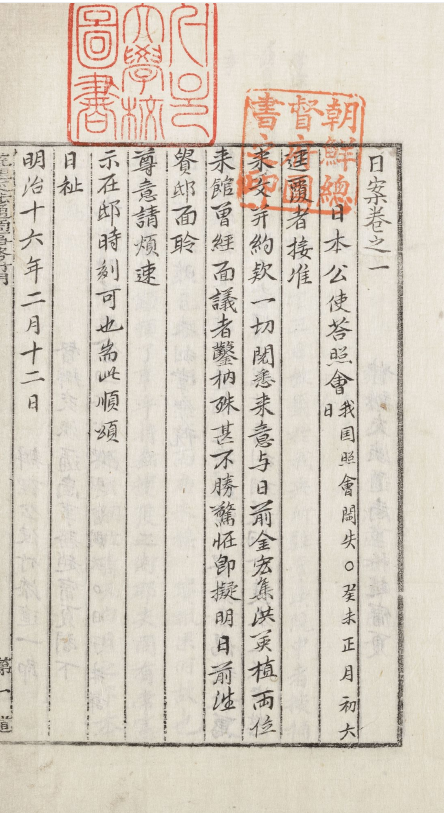 서울
大學校
圖書
朝鮮總
督府圖
書之印
日案卷之一
日本公使荅照會 我国照會闕失〇癸未正月初六
日
逕覆者接准
来文并約款一切閱悉来意与日前金宏集洪英植両位
来館曾經面議者鑿枘殊甚不勝驚怔即擬明日前往
貴邸面聆
尊意請煩速
示在邸時刻可也耑此順頌
日祉
明治十六年二月十二日
第一道